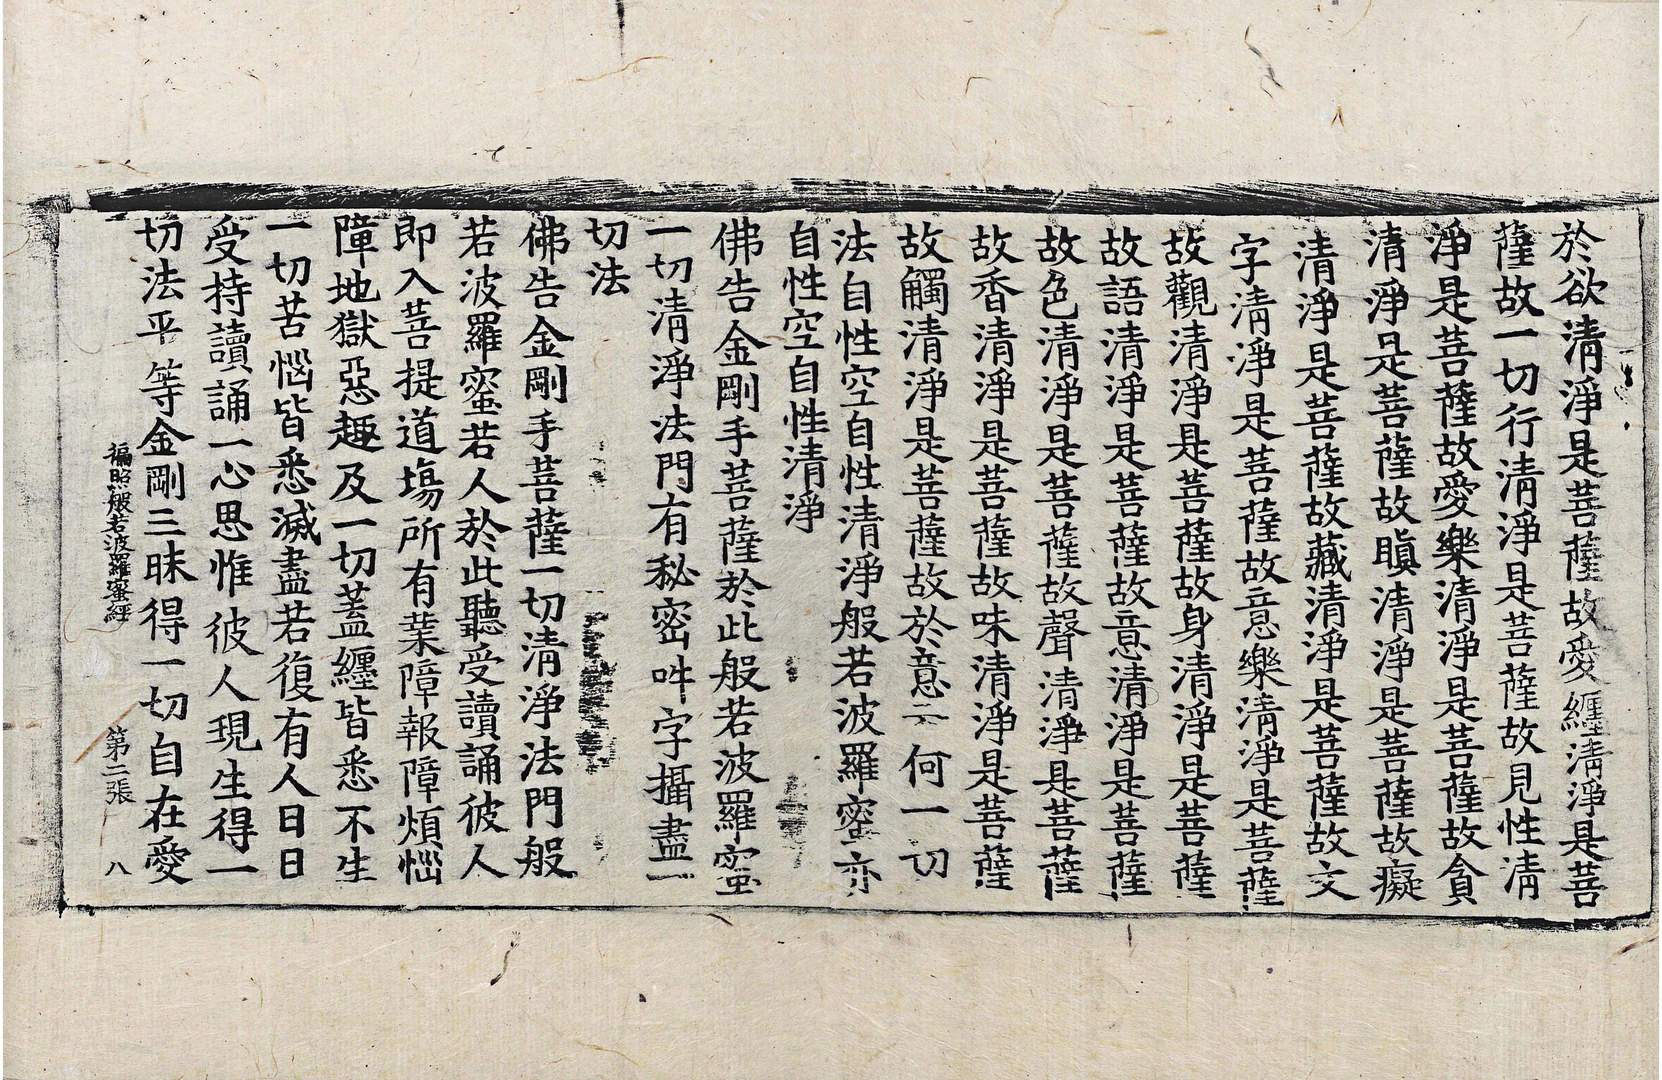 於欲清淨是菩薩故愛纏清淨是菩
薩故一切行清淨是菩薩故見性清
淨是菩薩故愛樂清淨是菩薩故貪
清淨是菩薩故瞋清淨是菩薩故癡
清淨是菩薩故藏清淨是菩薩故文
字清淨是菩薩故意樂清淨是菩薩
故觀清淨是菩薩故身清淨是菩薩
故語清淨是菩薩故意清淨是菩薩
故色清淨是菩薩故聲清淨是菩薩
故香清淨是菩薩故味清淨是菩薩
故觸清淨是菩薩故於意云何一切
法自性空自性清淨般若波羅蜜亦
自性空自性清淨
佛告金剛手菩薩於此般若波羅蜜
一切清淨法門有秘密吽字攝盡一
切法
佛告金剛手菩薩一切清淨法門般
若波羅蜜若人於此聽受讀誦彼人
即入菩提道場所有業障報障煩惱
障地獄惡趣及一切蓋纏皆悉不生
一切苦惱皆悉滅盡若復有人日日
受持讀誦一心思惟彼人現生得一
切法平等金剛三昧得一切自在愛
徧照般若波羅蜜經 第二張 八